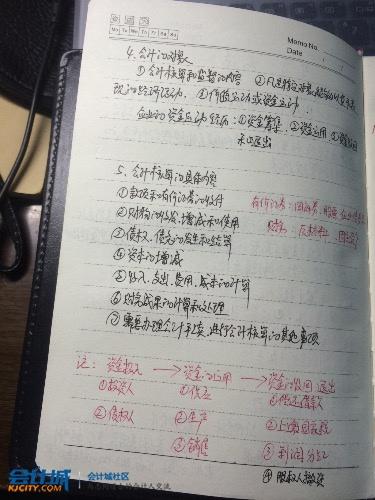 Mo Tu We Th Fr Sa Su
Memo No.
Date / /
4. 会计的对象
①会计核算和监督的内容 ②凡是特定对象能够以货币表
现的经济活动. ③价值运动或资金运动
企业的资金运动经历: ①资金筹集 ②资金运用 ③资金收回
和退出
5. 会计核算的具体内容
①款项和有价证券的收付
②财物的收发、增减和使用
③债权、债务的发生和结算
④资本的增减
⑤收入、支出、费用、成本的计算
⑥财务成果的计算和处理
⑦需要办理会计手续、进行会计核算的其他事项
有价证券: 国库券、股票、企业债券
财物: 原材料、固定资产
注: 资金投入 → 资金的运用 → 资金的收回 退出
①投资人 ①供应 ①偿还借款
②债权人 ②生产 ②上缴国家税
③销售 ③利润分红
④股权人撤资
会计城
KJCITY.COM
会计城社区